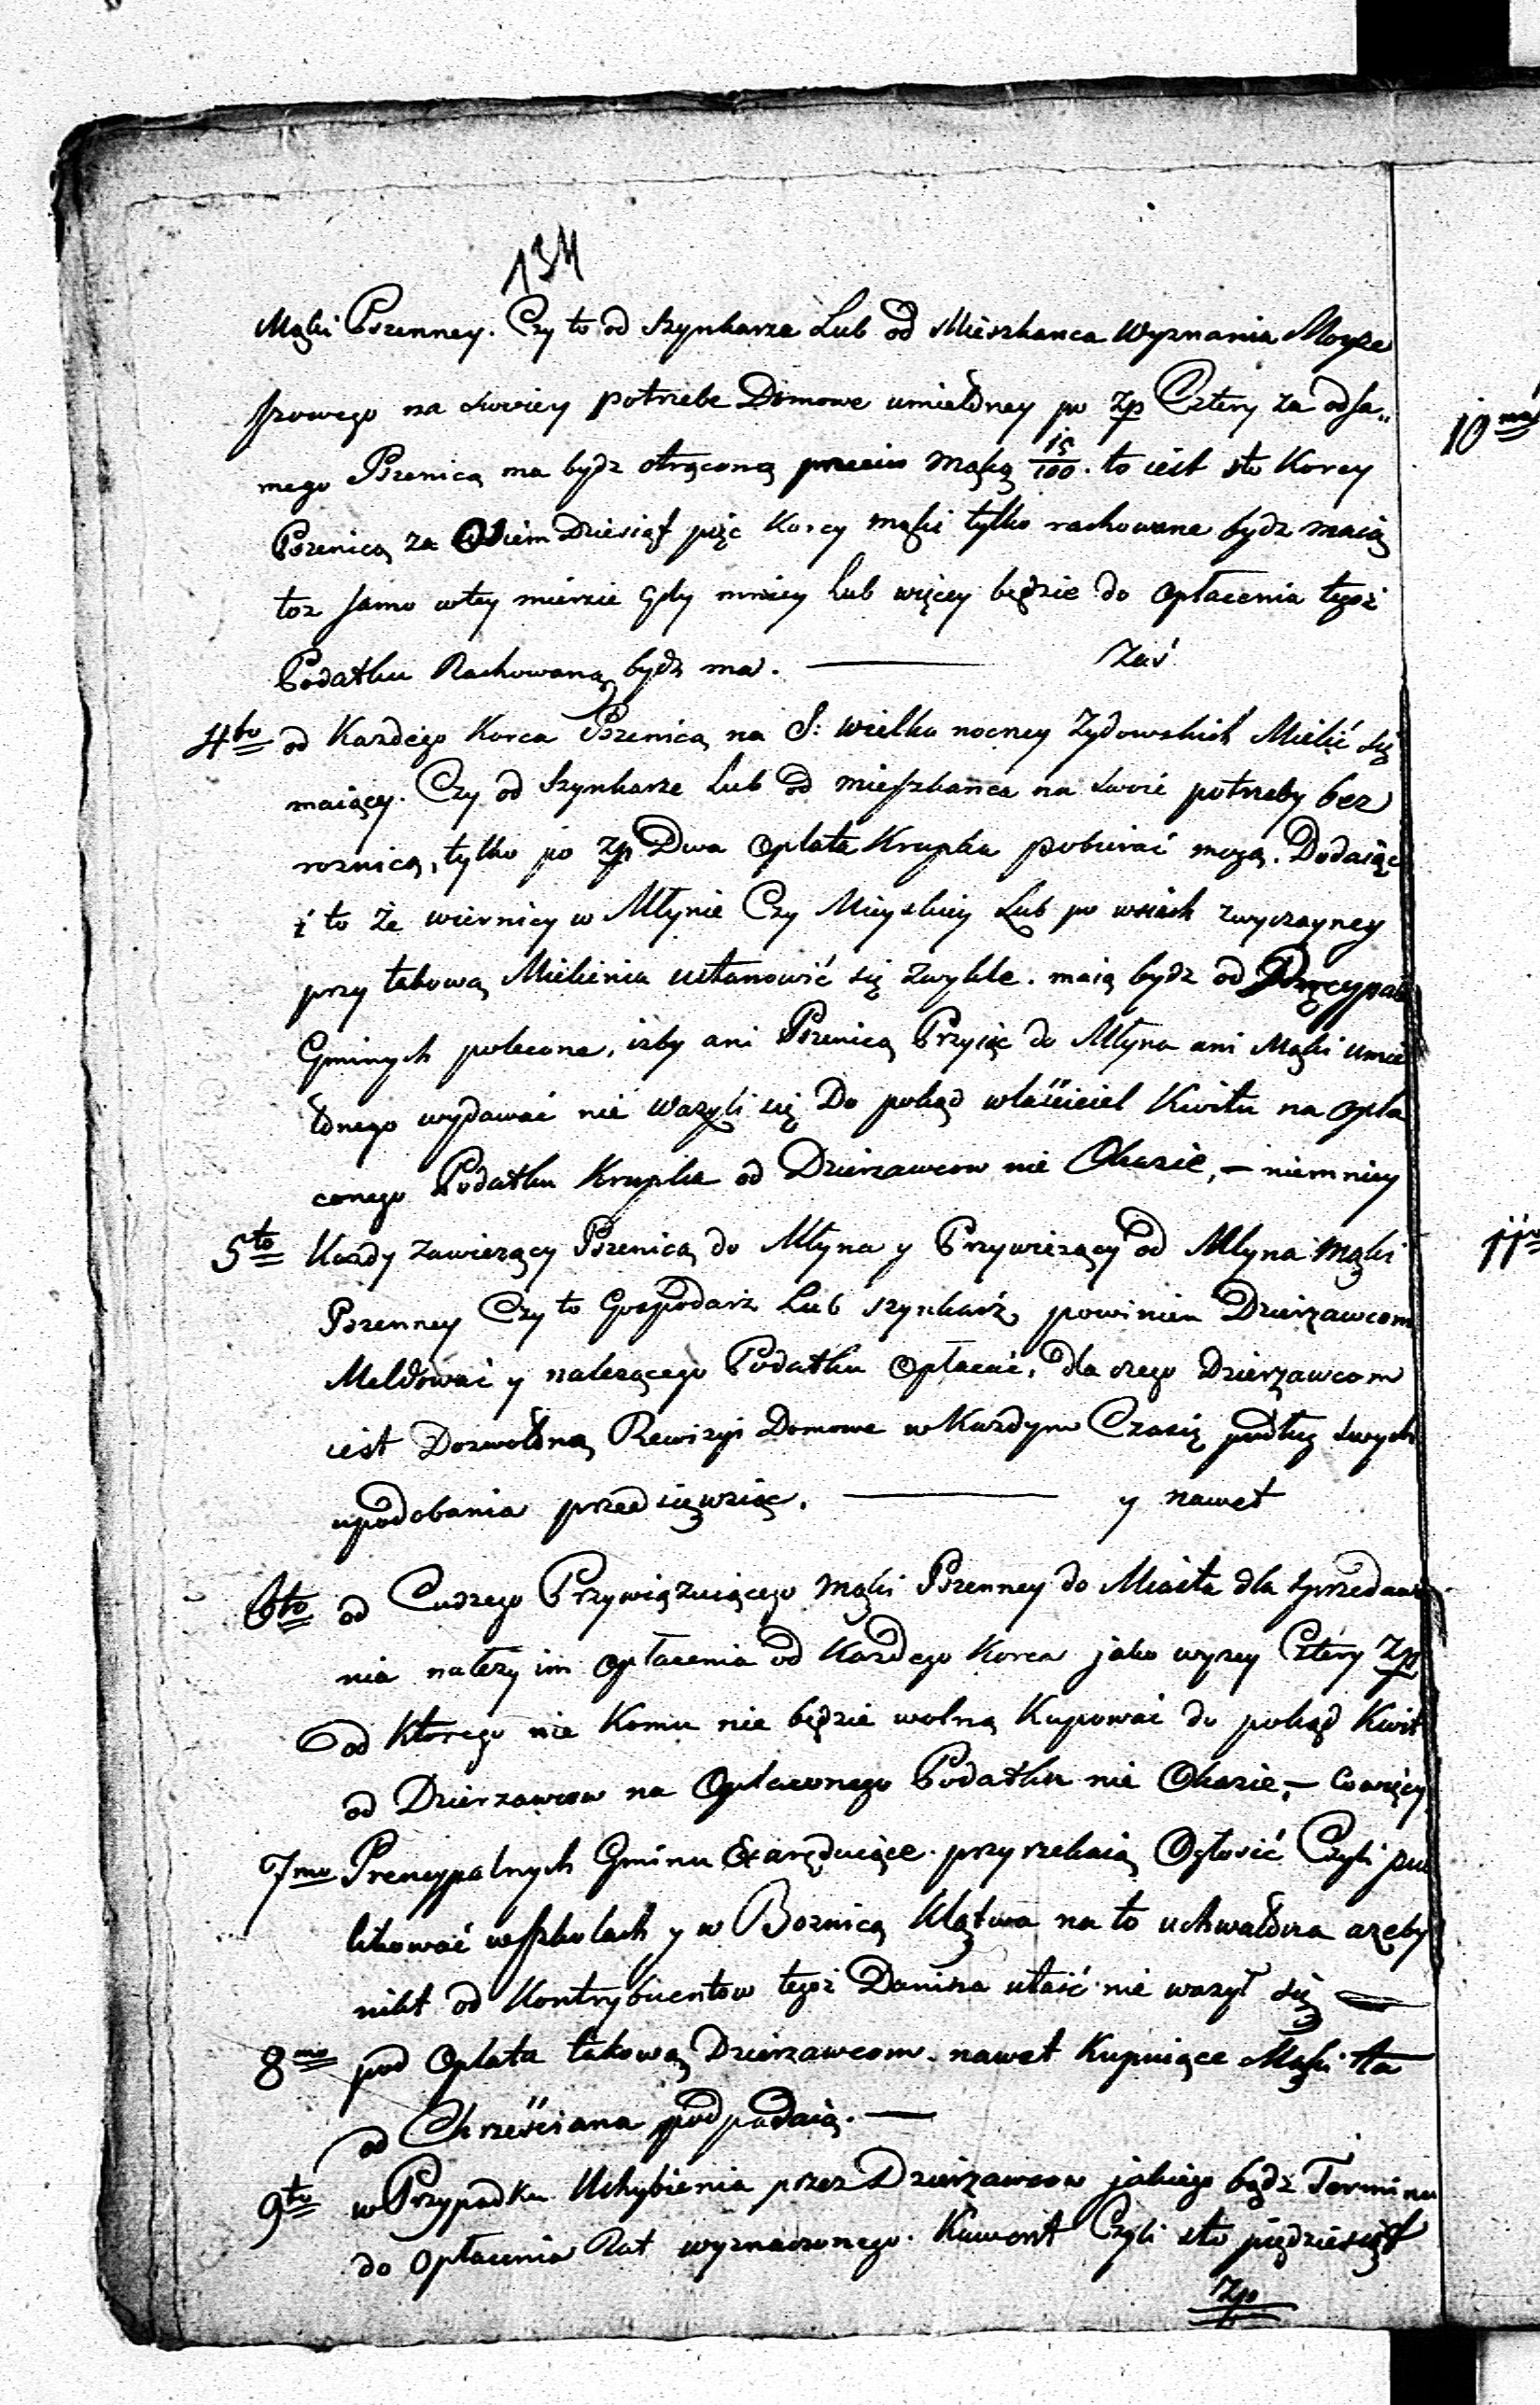 134
Mąki Pszenney. Czy to od Szynkarza Lub od Mieszkanca Wyznania Moyze
szowego na swoiey potrzebe Domowe umiełdney po Zp Cztery za odsa„
mego Pszenicą ma bydz otrąconą przeciw Mąką 15/100. to iest sto Korcy
Pszenicą za Osiem Dziesiąt pięc Korcy mąki tylko rachowane bydz maią
toz samo wtey mierze gdy mniey Lub więcey będzie do opłacenia tegoż
Podatku Rachowaną bydz ma. — Zaś
4to od Kazdego Korca Pszenicą na S: wielka nocney Zydowskich Mielić się
maiący. Czy od Szynkarza Lub od mieszkańca na swoie potrzeby bez
roznicą, tylko po Zp Dwa Opłata Krupka pobierać mogą. Dodaiąc
i to że wiernicy w Młynie Czy Mieyskiey Lub po wsiach zwyczayney
przy takową Mielienia ustanowić się zwykle. maią bydz od Pręcypal
Gminych polecone, izby ani Pszenicą Przyiąc do Młyna ani Mąki umie
łdnego wydawać nie wazyli się Do pokąd właściciel Kwitu na opła
conego Podatku Krupka od Dzierzawcow nie Okazie, — niemniey
5to Kazdy zawiezący Pszenicą do Młyna y Przywiezący od Młyna Mąki
Pszenney Czy to Gospodarz Lub szynkarz, powinien Dzierzawcom
Meldować y nalezącego Podatku Opłacać, dla czego Dzierzawcom
iest Dozwołdną Rewizyi Domowe w Kazdym Czasię podług swych
upodobania przedsięwziąc. — y nawet
6to od Cudzego Przywiązuiącego Mąki Pszenney do Miasta dla sprzedawa
nia nalezy im opłacenia od Kazdego Korca jako wyzey Cztéry Zp
od Ktorego nie Komu nie będzie wolną Kupować do pokąd Kwit
od Dzierzawcow na Opłaconego Podatku nie Okazie, — Cowięcy
7mo Prencypalnych Gminu Exaręduiące przyrzekaią Ogłosić Czyli pu
likować w szkolach y w Boznicą Klątwa na to uchwałdna azeby
nikt od Kontrybuentow tegoż Danina utaić nie wazył się —
8mo pod Opłata takową Dzierzawcom. nawet Kupuiące Mąki ta
od Chrześciana podpadaią. —
9to w Przypadku Uchybienia przez Dzierzawcow jakiego bądz Terminu
do opłacenia Rat wyznaczonego. Kawent Czyli sto piędziesiąt
Zp
10ma